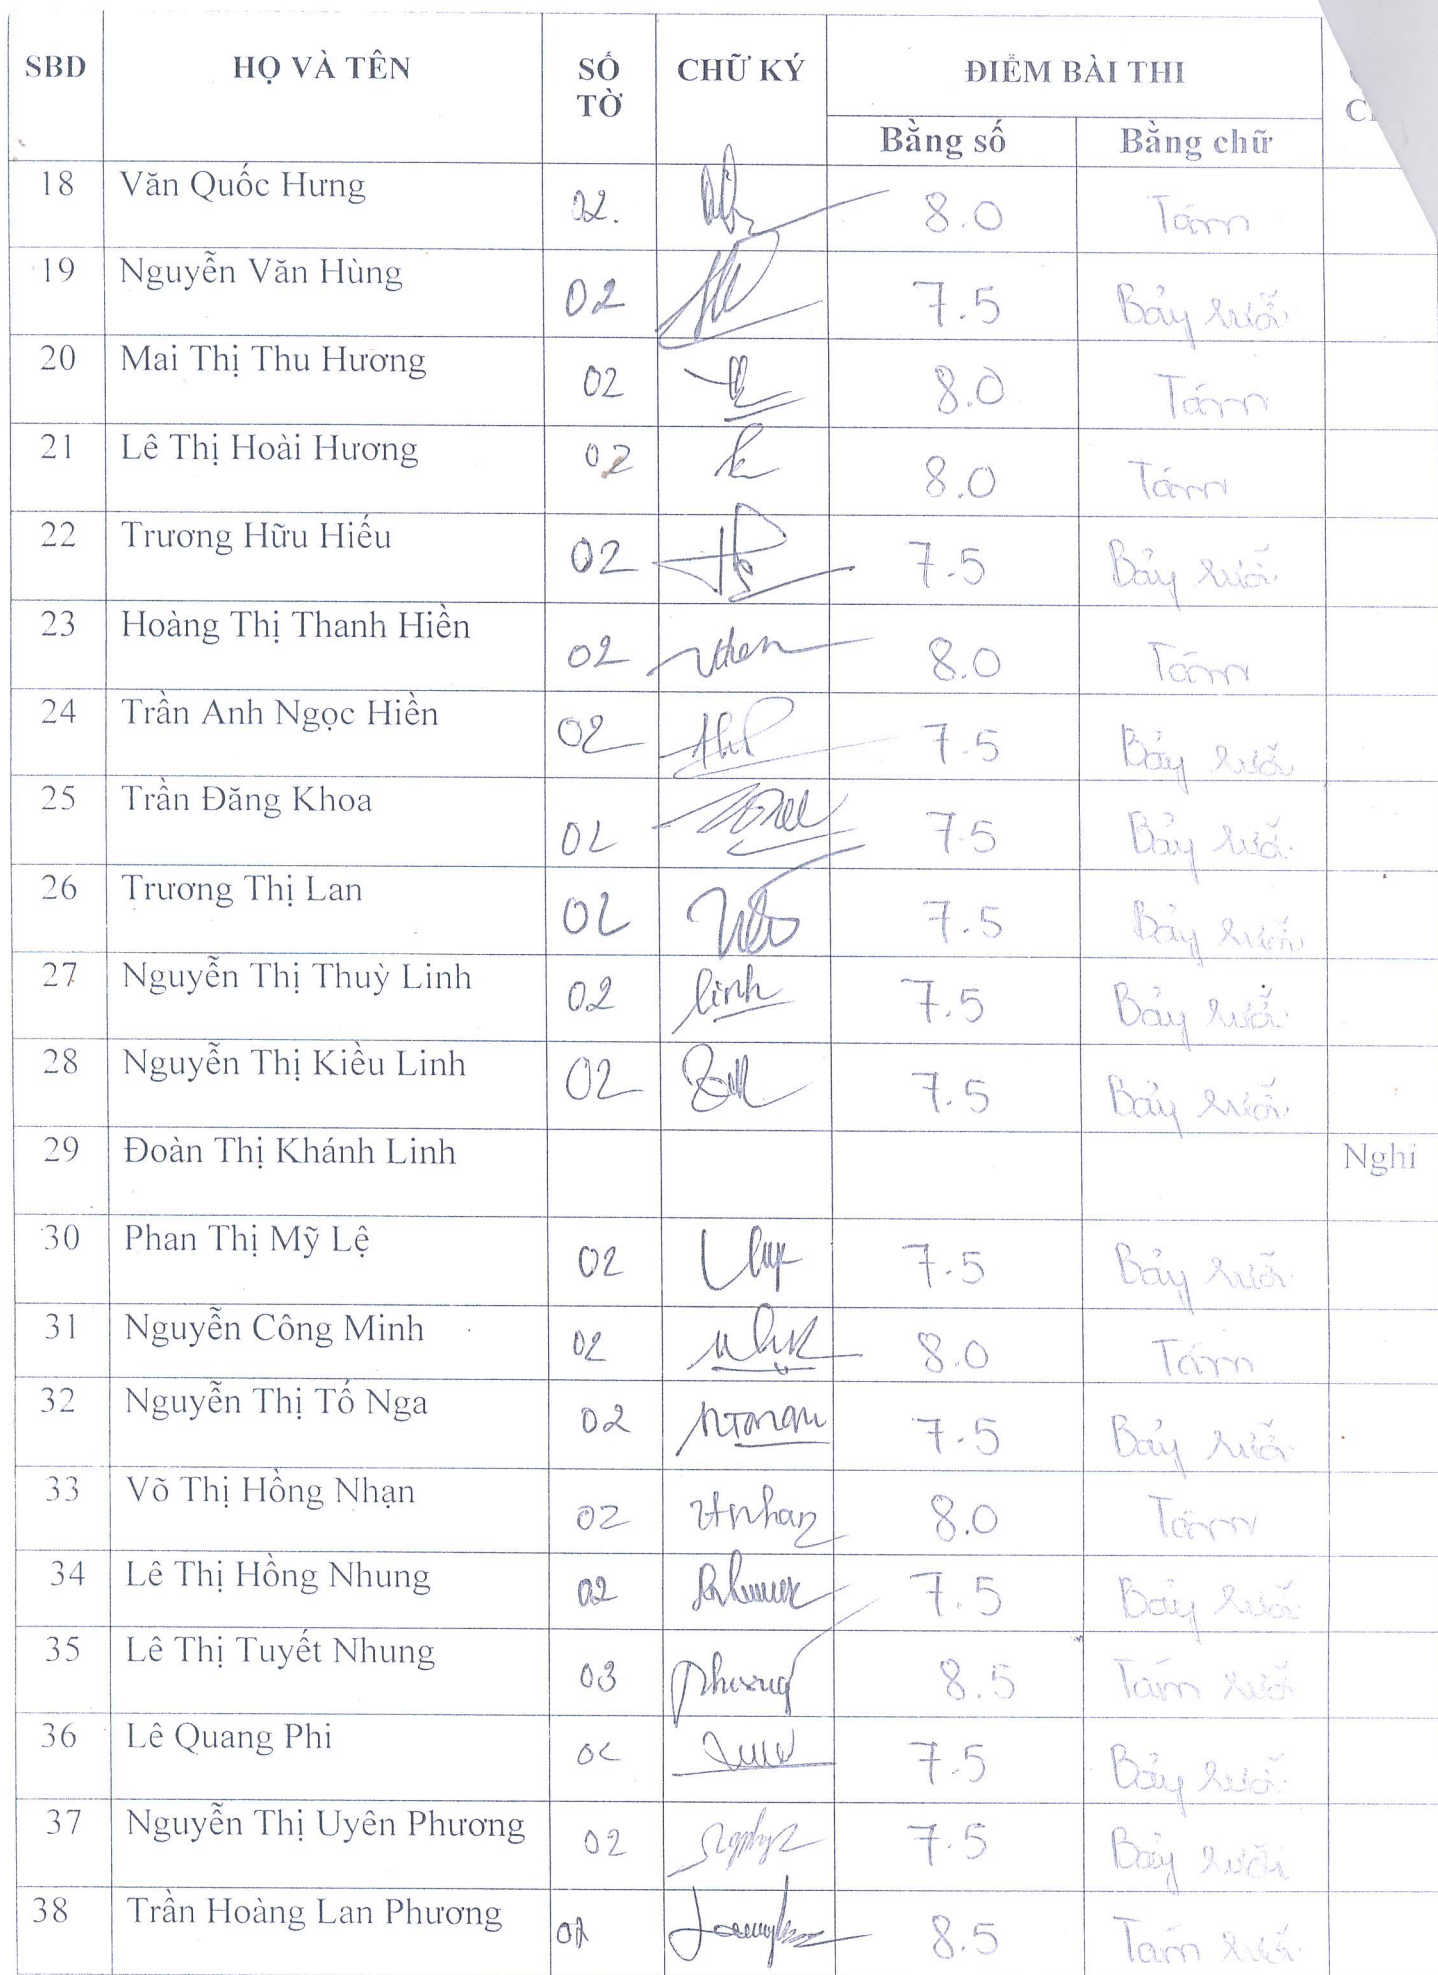 SBD HỌ VÀ TÊN SỐ TỜ CHỮ KÝ ĐIỂM BÀI THI
Bằng số Bằng chữ
18 Văn Quốc Hưng 02. 8.0 Tám
19 Nguyễn Văn Hùng 02 7.5 Bảy rưỡi
20 Mai Thị Thu Hương 02 8.0 Tám
21 Lê Thị Hoài Hương 02 8.0 Tám
22 Trương Hữu Hiếu 02 7.5 Bảy rưỡi
23 Hoàng Thị Thanh Hiền 02 8.0 Tám
24 Trần Anh Ngọc Hiền 02 7.5 Bảy rưỡi
25 Trần Đăng Khoa 02 7.5 Bảy rưỡi
26 Trương Thị Lan 02 7.5 Bảy rưỡi
27 Nguyễn Thị Thuỳ Linh 02 linh 7.5 Bảy rưỡi
28 Nguyễn Thị Kiều Linh 02 7.5 Bảy rưỡi
29 Đoàn Thị Khánh Linh Nghỉ
30 Phan Thị Mỹ Lệ 02 7.5 Bảy rưỡi
31 Nguyễn Công Minh 02 8.0 Tám
32 Nguyễn Thị Tố Nga 02 7.5 Bảy rưỡi
33 Võ Thị Hồng Nhạn 02 8.0 Tám
34 Lê Thị Hồng Nhung 02 7.5 Bảy rưỡi
35 Lê Thị Tuyết Nhung 03 8.5 Tám rưỡi
36 Lê Quang Phi 02 7.5 Bảy rưỡi
37 Nguyễn Thị Uyên Phương 02 7.5 Bảy rưỡi
38 Trần Hoàng Lan Phương 02 8.5 Tám rưỡi